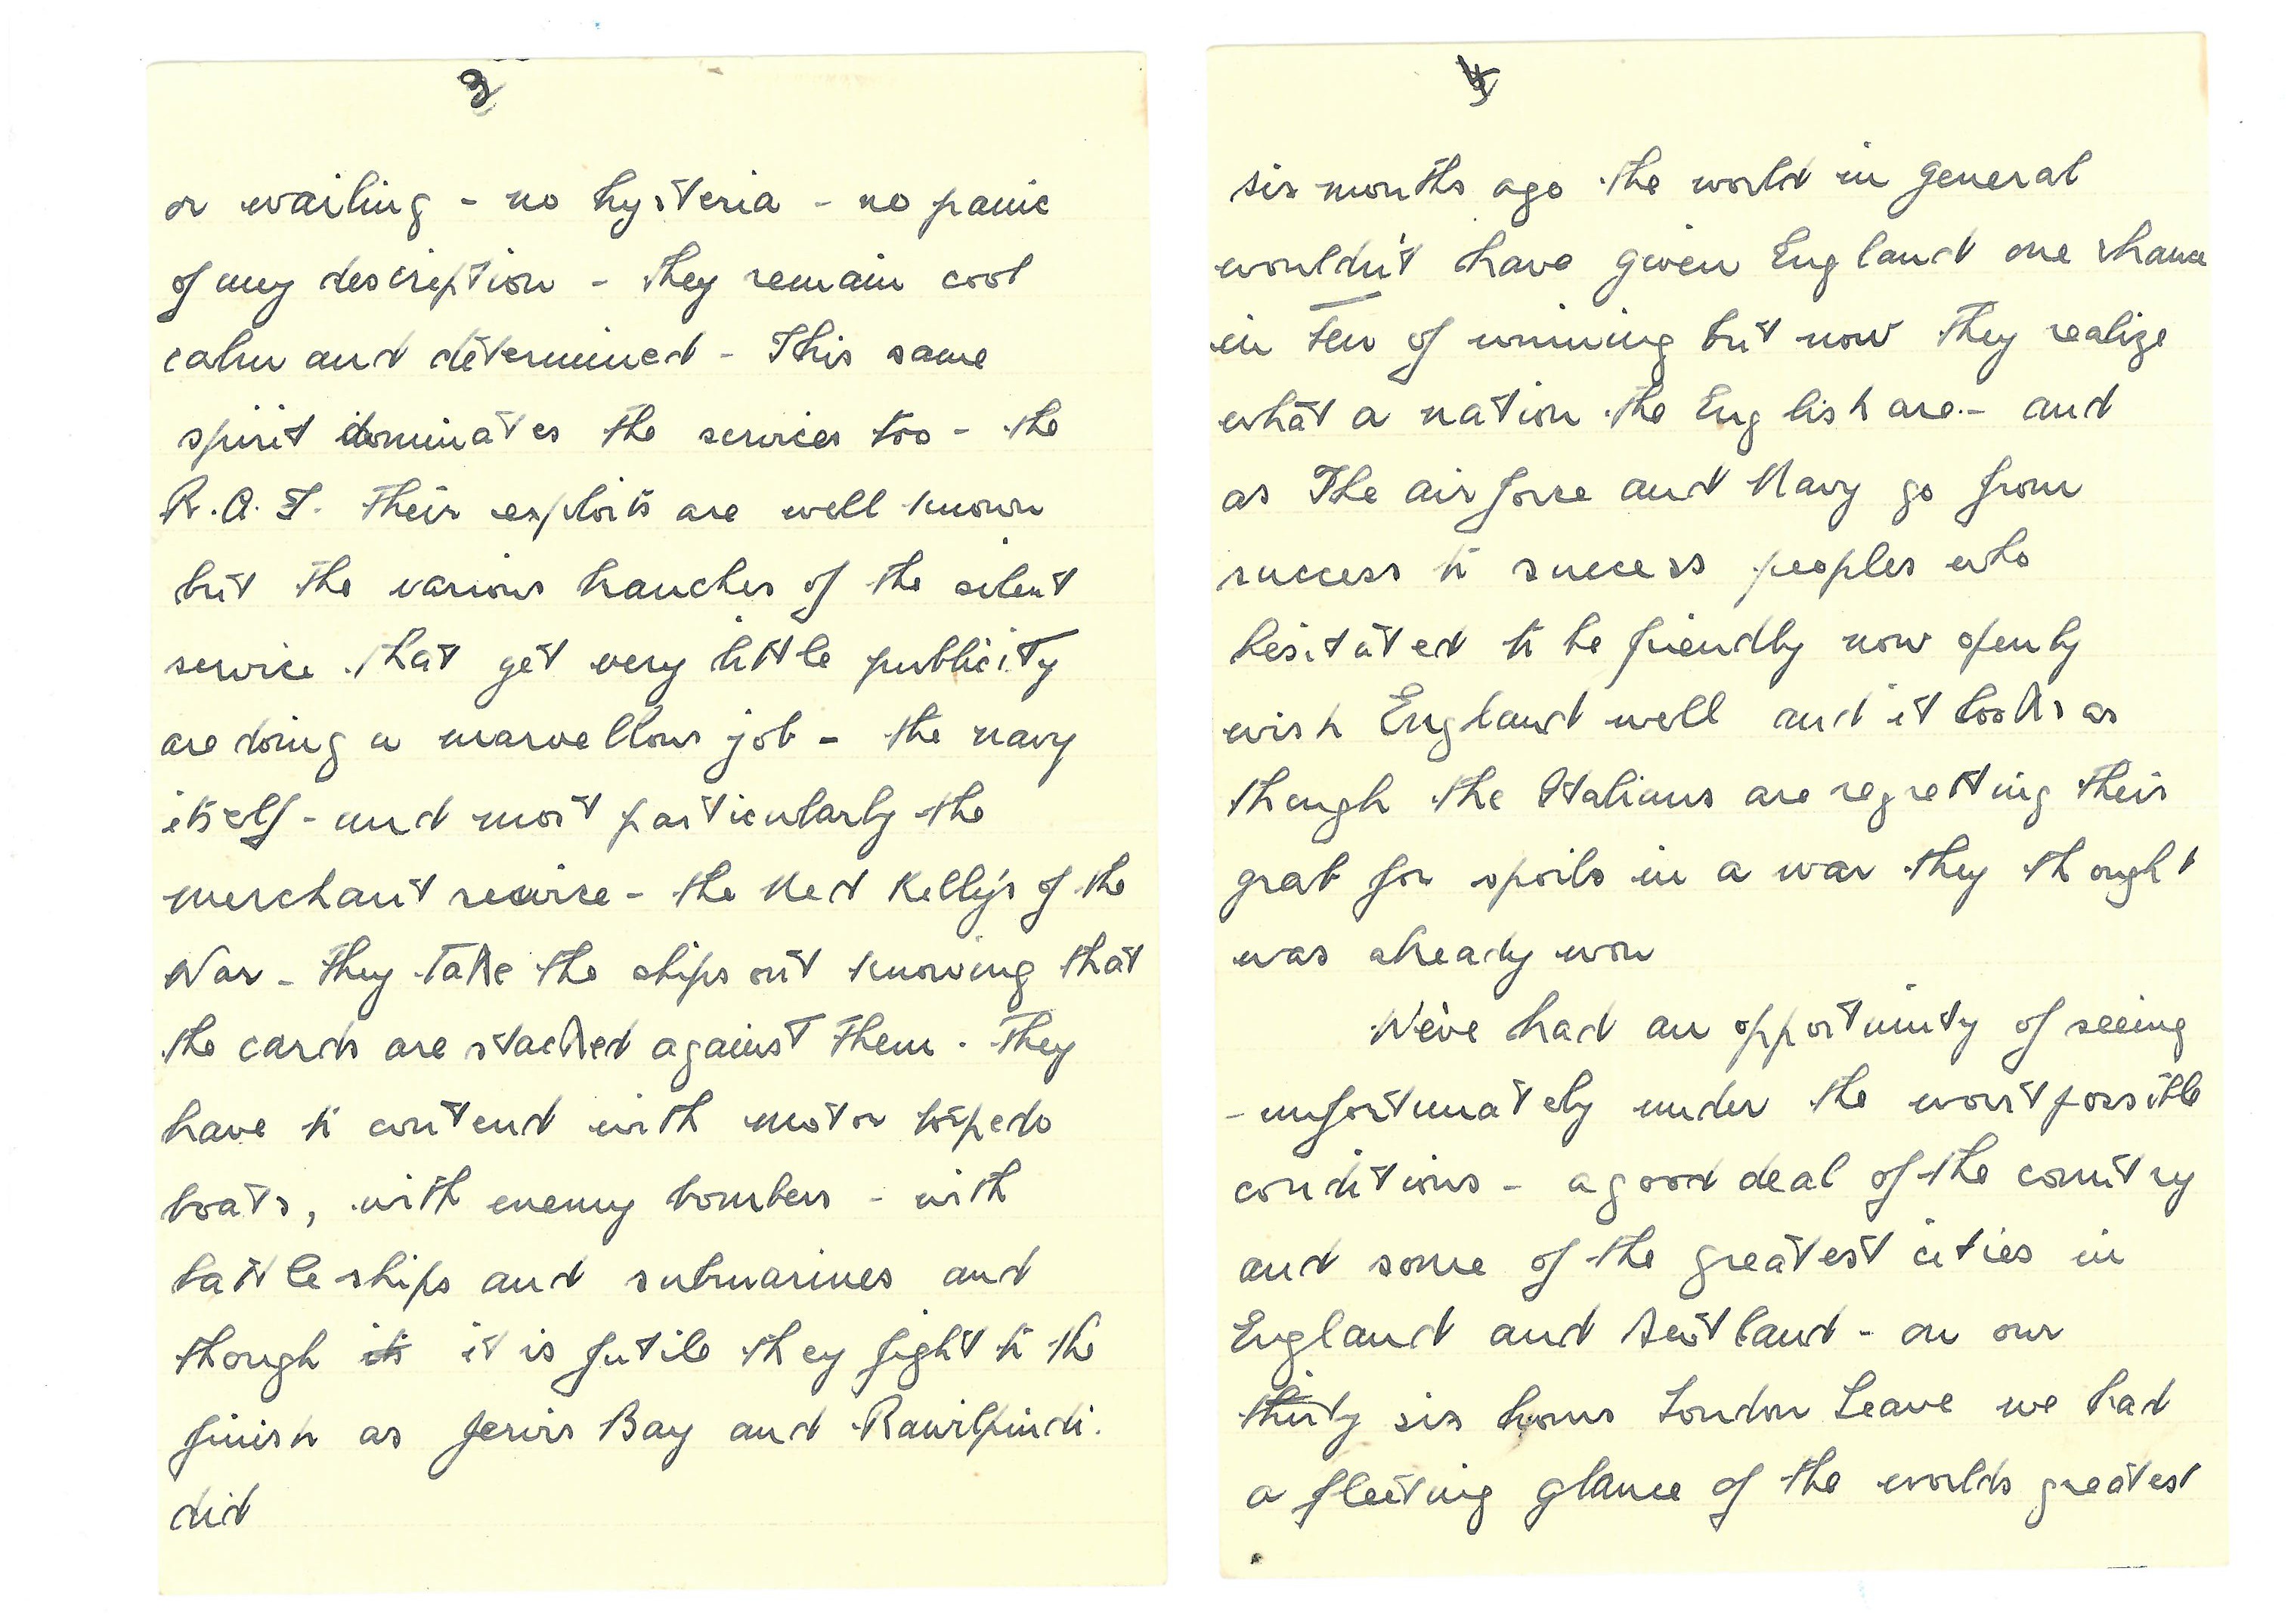 3
or wailing - no hysteria - no panic
of any description - they remain cool
calm and determined - This same
spirit dominates the services too - the
R.A.F. their exploits are well known
but the various branches of the silent
service that get very little publicity
are doing a marvellous job - the navy
itself - and most particularly the
merchant service - the Ned Kelly's of the
War - they take the ships out knowing that
the cards are stacked against them. They
have to contend with motor torpedo
boats, with enemy bombers - with
battleships and submarines and
though its it is futile they fight to the
finish as Jervis Bay and Rawilpindi.
did
4
six months ago the world in general
wouldn't have given England one chance
in ten of winning but now they realize
what a nation the English are - and
as The air force and Navy go from
success to success peoples who
hesitated to be friendly now openly
wish England well and it looks as
though the Italians are regretting their
grab for spoils in a war they thought
was already won
We've had an opportunity of seeing
- unfortunately under the worst possible
conditions - a good deal of the country
and some of the greatest cities in
England and Scotland - on our
thirty six hours London Leave we had
a fleeting glance of the worlds greatest